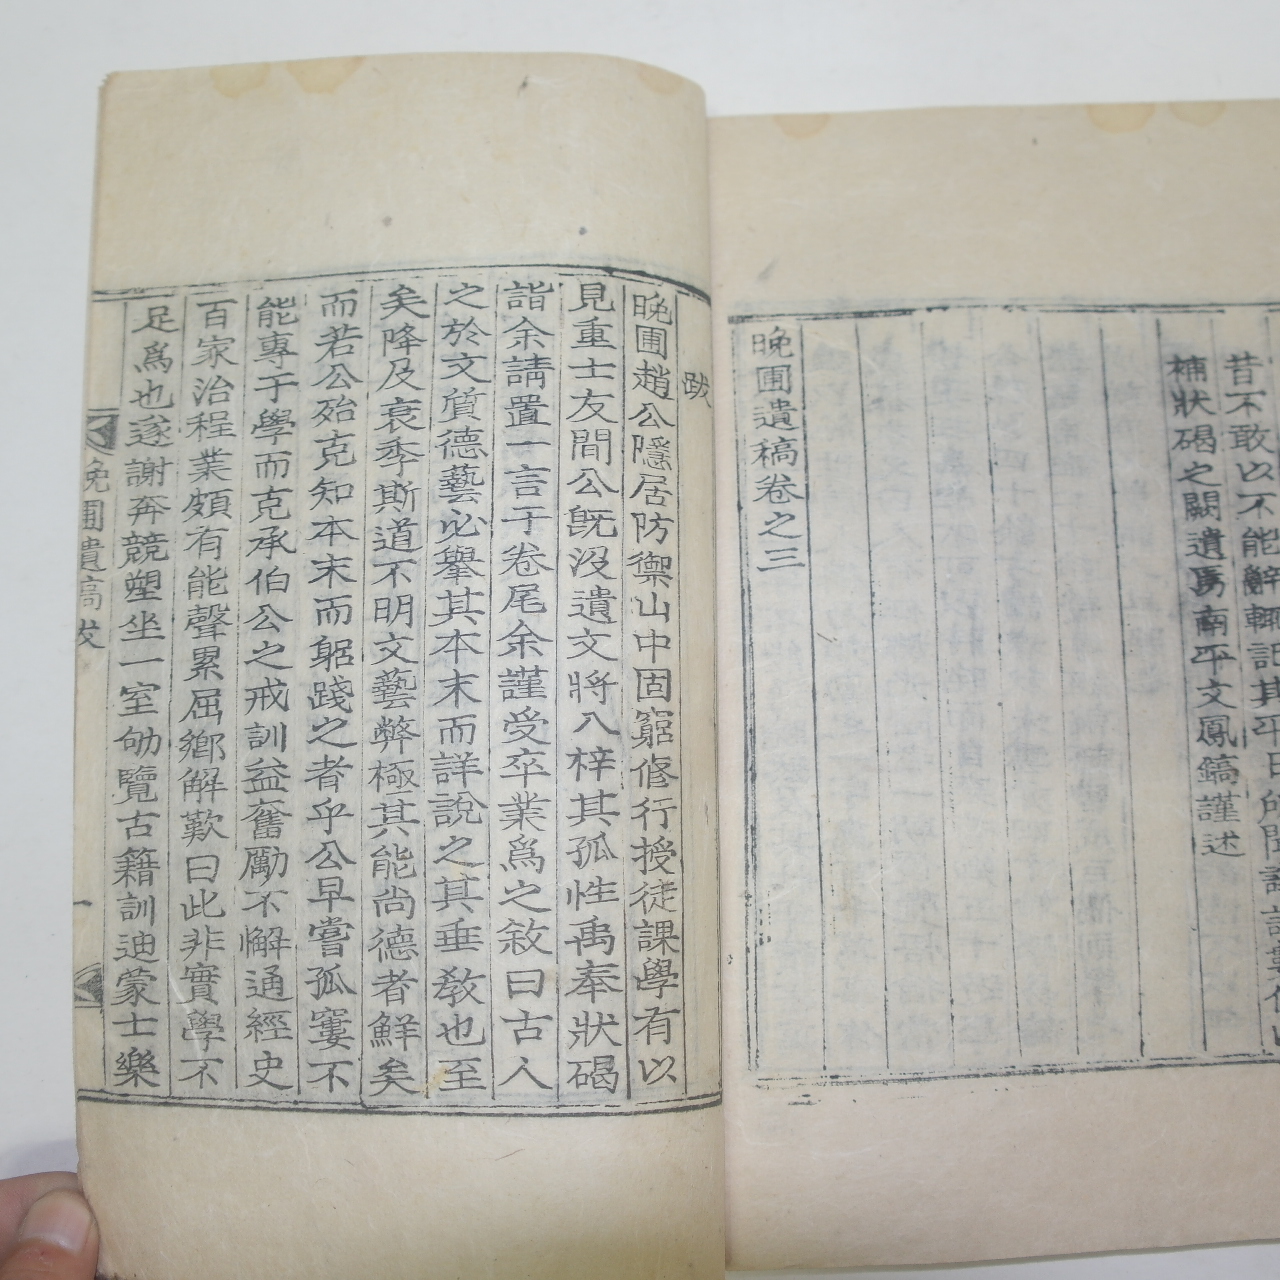 昔不敢以不能辭輒記其平日所聞
補狀碣之闕遺焉南平文鳳鎬謹述
晚圃遺稿卷之三
跋
晚圃趙公隱居防禦山中固窮修行授徒課學有以
見重士友間公旣沒遺文將入梓其孤性禹奉狀碣
詣余請置一言于卷尾余謹受卒業爲之敘曰古人
之於文質德藝必擧其本末而詳說之其垂教也至
矣降及衰季斯道不明文藝弊極其能尙德者鮮矣
而若公殆克知本末而躬踐之者乎公早嘗孤窶不
能專于學而克承伯公之戒訓益奮勵不懈通經史
百家治程業頗有能聲累屈鄕解歎曰此非實學不
足爲也遂謝奔競塑坐一室劬覽古籍訓迪蒙士樂
晚圃遺稿跋
一